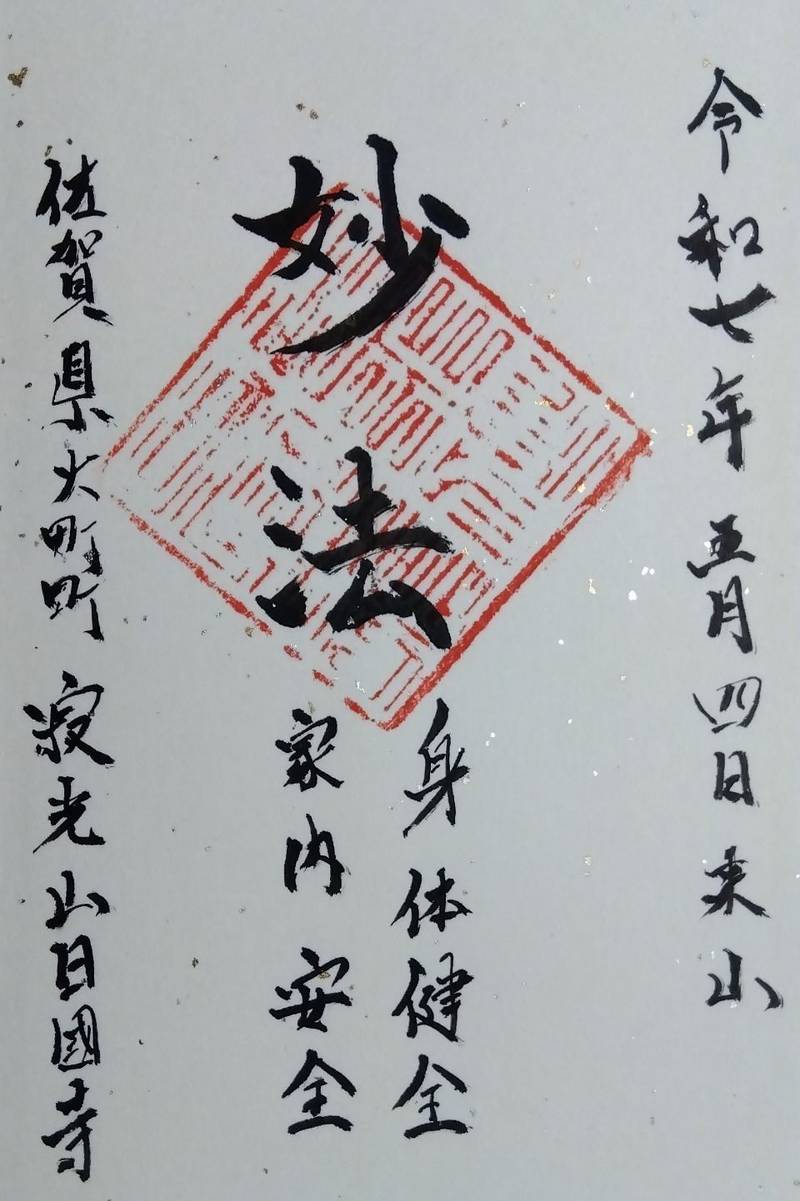 令和七年五月四日来山
妙法
身体健全
家内安全
佐賀県大町町 寂光山日國寺